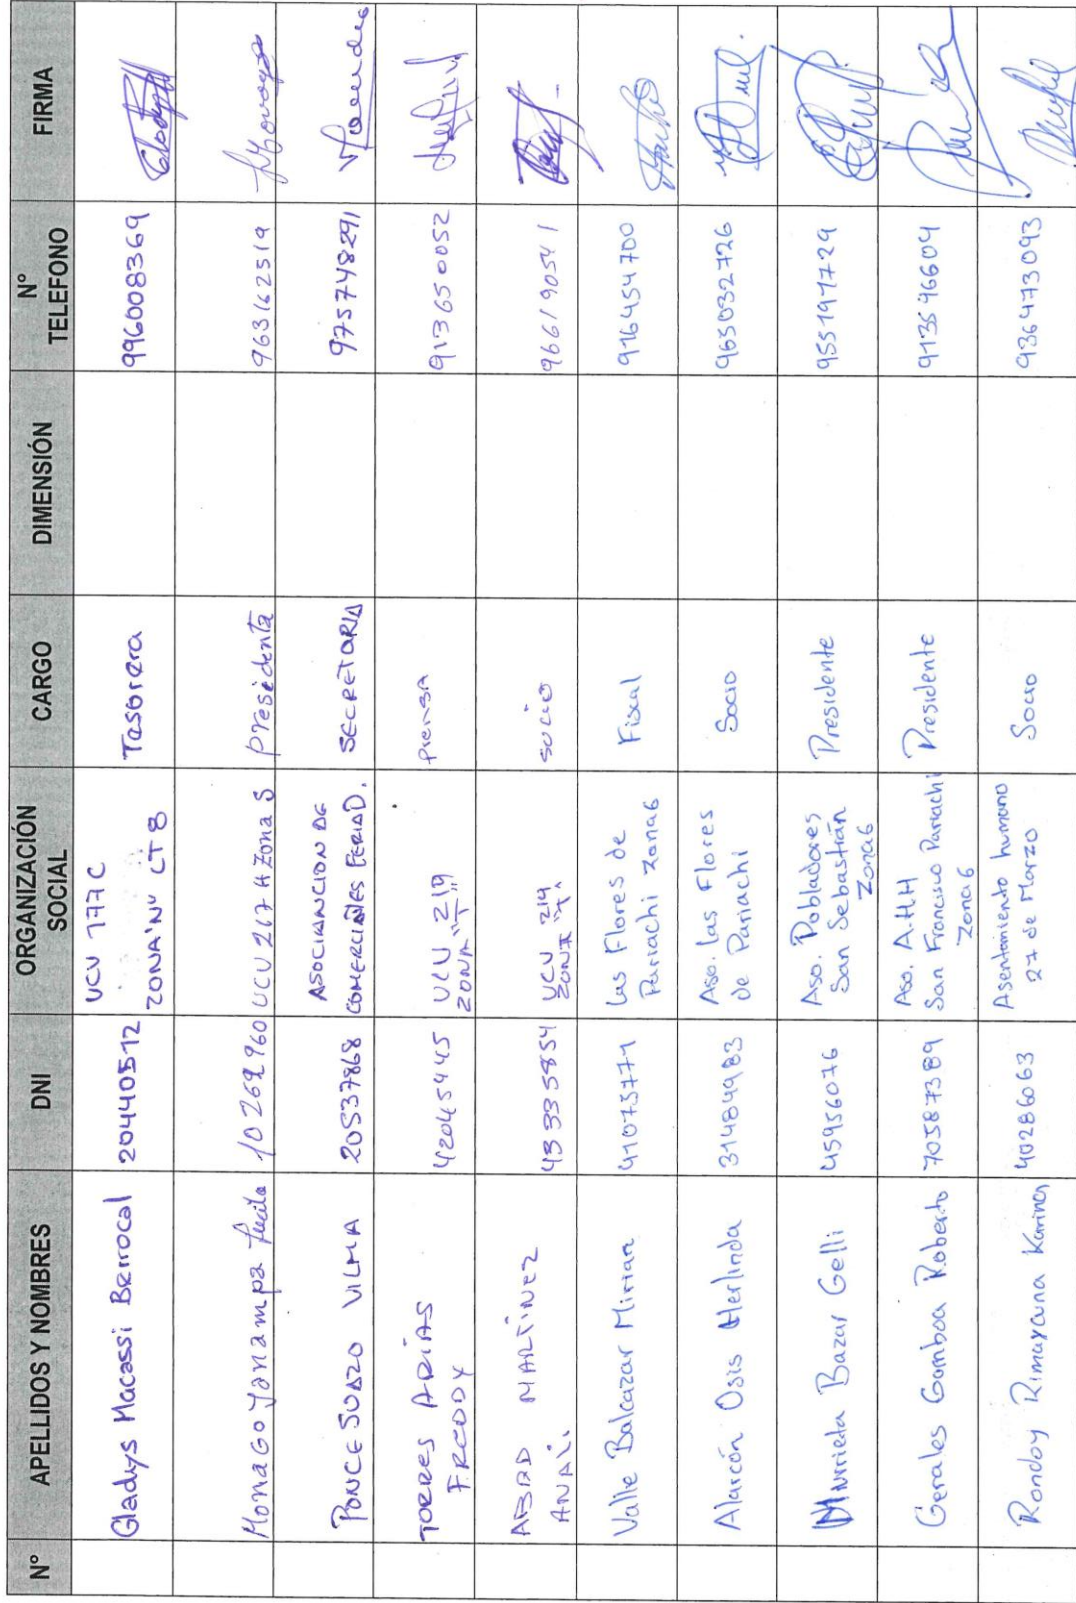 N° APELLIDOS Y NOMBRES DNI ORGANIZACIÓN SOCIAL CARGO DIMENSIÓN N° TELEFONO FIRMA
Gladys Macassi Berrocal 20440572 UCV 177 C ZONA 'N' LT 8 Tesorera 996008369
Monago Yanampa Lucila 10269960 UCV 217 A Zona S Presidenta 963162519
PONCE SUAZO VILMA 20537868 ASOCIACION DE COMERCIALES FERIA D. SECRETARIA 975748291
TORRES ARIAS FREDDY 42045445 UCV 219 ZONA "T" Prensa 913650052
ABAD MARTINEZ ANAI. 43335854 UCV 219 ZONA "T" socio 966190541
Valle Balcazar Mirian 41075771 Las Flores de Pariachi Zona 6 Fiscal 916454700
Alarcón Osis Herlinda 31484983 Aso. las Flores de Pariachi Socio 965032726
Murrieta Bazar Gelli 45956076 Aso. Pobladores San Sebastián Zona 6 Presidente 955197729
Gerales Gamboa Roberto 70587389 Aso. A.HH San Francisco Pariachi Zona 6 Presidente 913546604
Rondoy Rimaycuna Karina 40286063 Asentamiento humano 27 de Marzo Socio 936473093